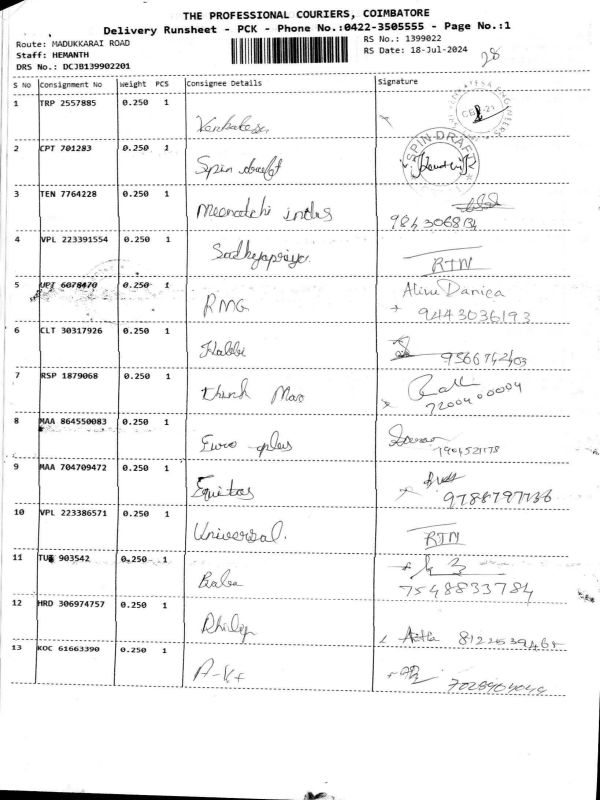 THE PROFESSIONAL COURIERS, COIMBATORE
Delivery Runsheet - PCK - Phone No.:0422-3505555 - Page No.:1
Route: MADUKKARAI ROAD RS No.: 1399022
Staff: HEMANTH RS Date: 18-Jul-2024 28
DRS No.: DCJB139902201
S No Consignment No Weight PCS Consignee Details Signature
1 TRP 2557885 0.250 1
Venkatesa
2 CPT 701283 0.250 1 SPIN DRAFT
Spin draft
3 TEN 7764228 0.250 1
Meenatchi indus
4 VPL 223391554 0.250 1
Sadhyapriya. RTN
5 UPT 6078470 0.250 1 Aline Danica
RMG 9443036193
6 CLT 30317926 0.250 1
9566742403
7 RSP 1879068 0.250 1
think Mao 7200400004
8 MAA 864550083 0.250 1
Euro plus 7904521178
9 MAA 704709472 0.250 1
Equitas
10 VPL 223386571 0.250 1
Universal. RTN
11 903542 0.250 1
Baba 7548833784
12 HRD 306974757 0.250 1
Philip
13 KOC 61663390 0.250 1